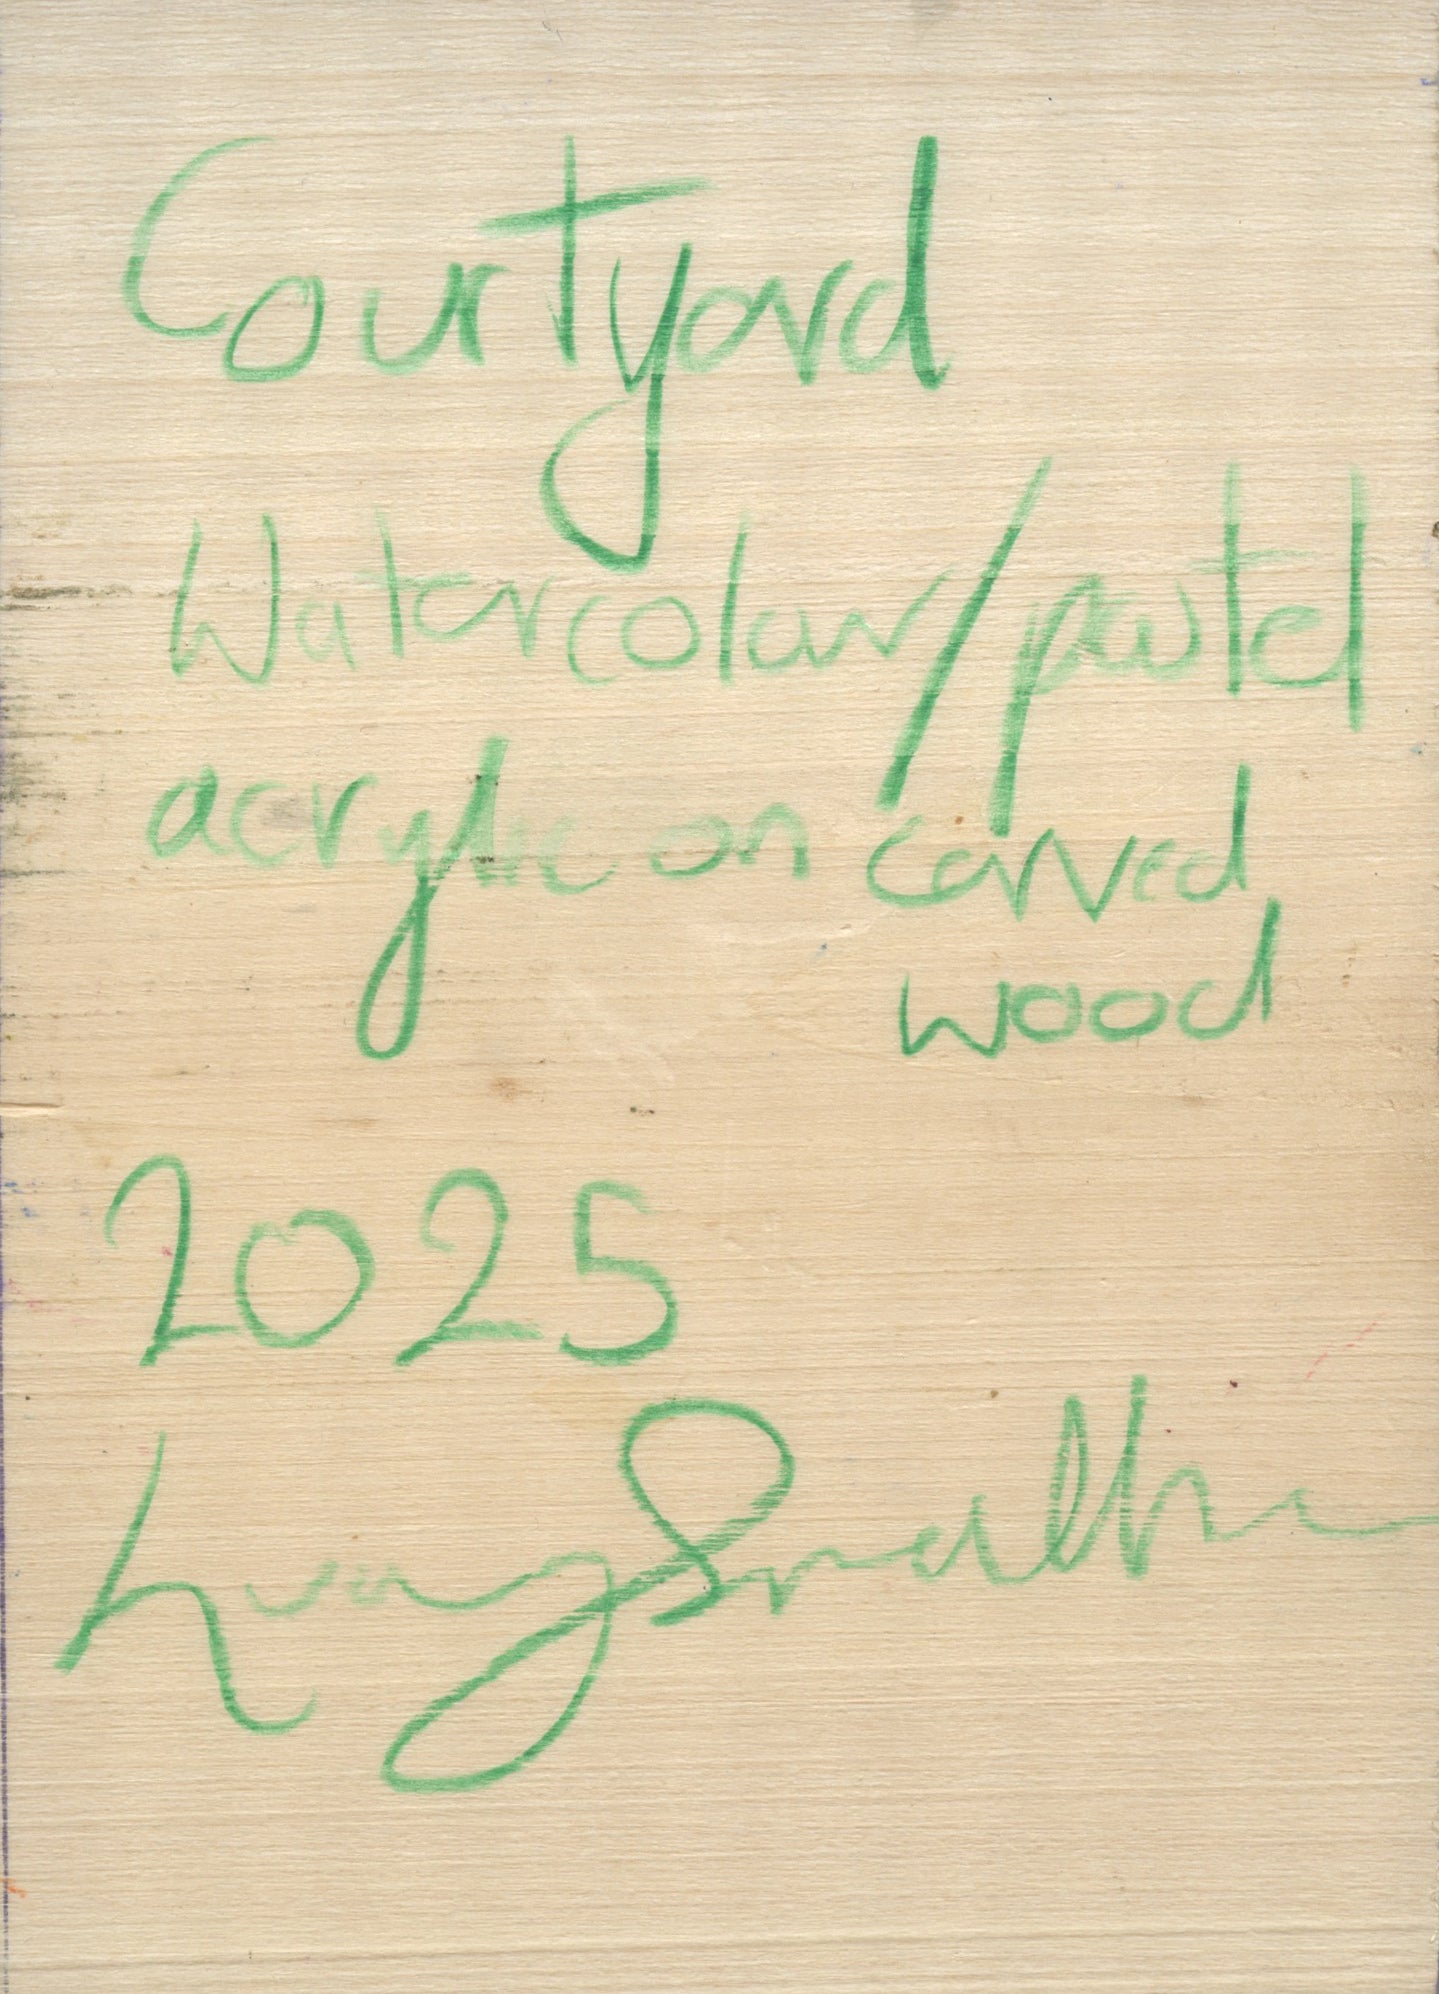 Courtyard
Watercolour/pastel
acrylic on carved
wood
2025